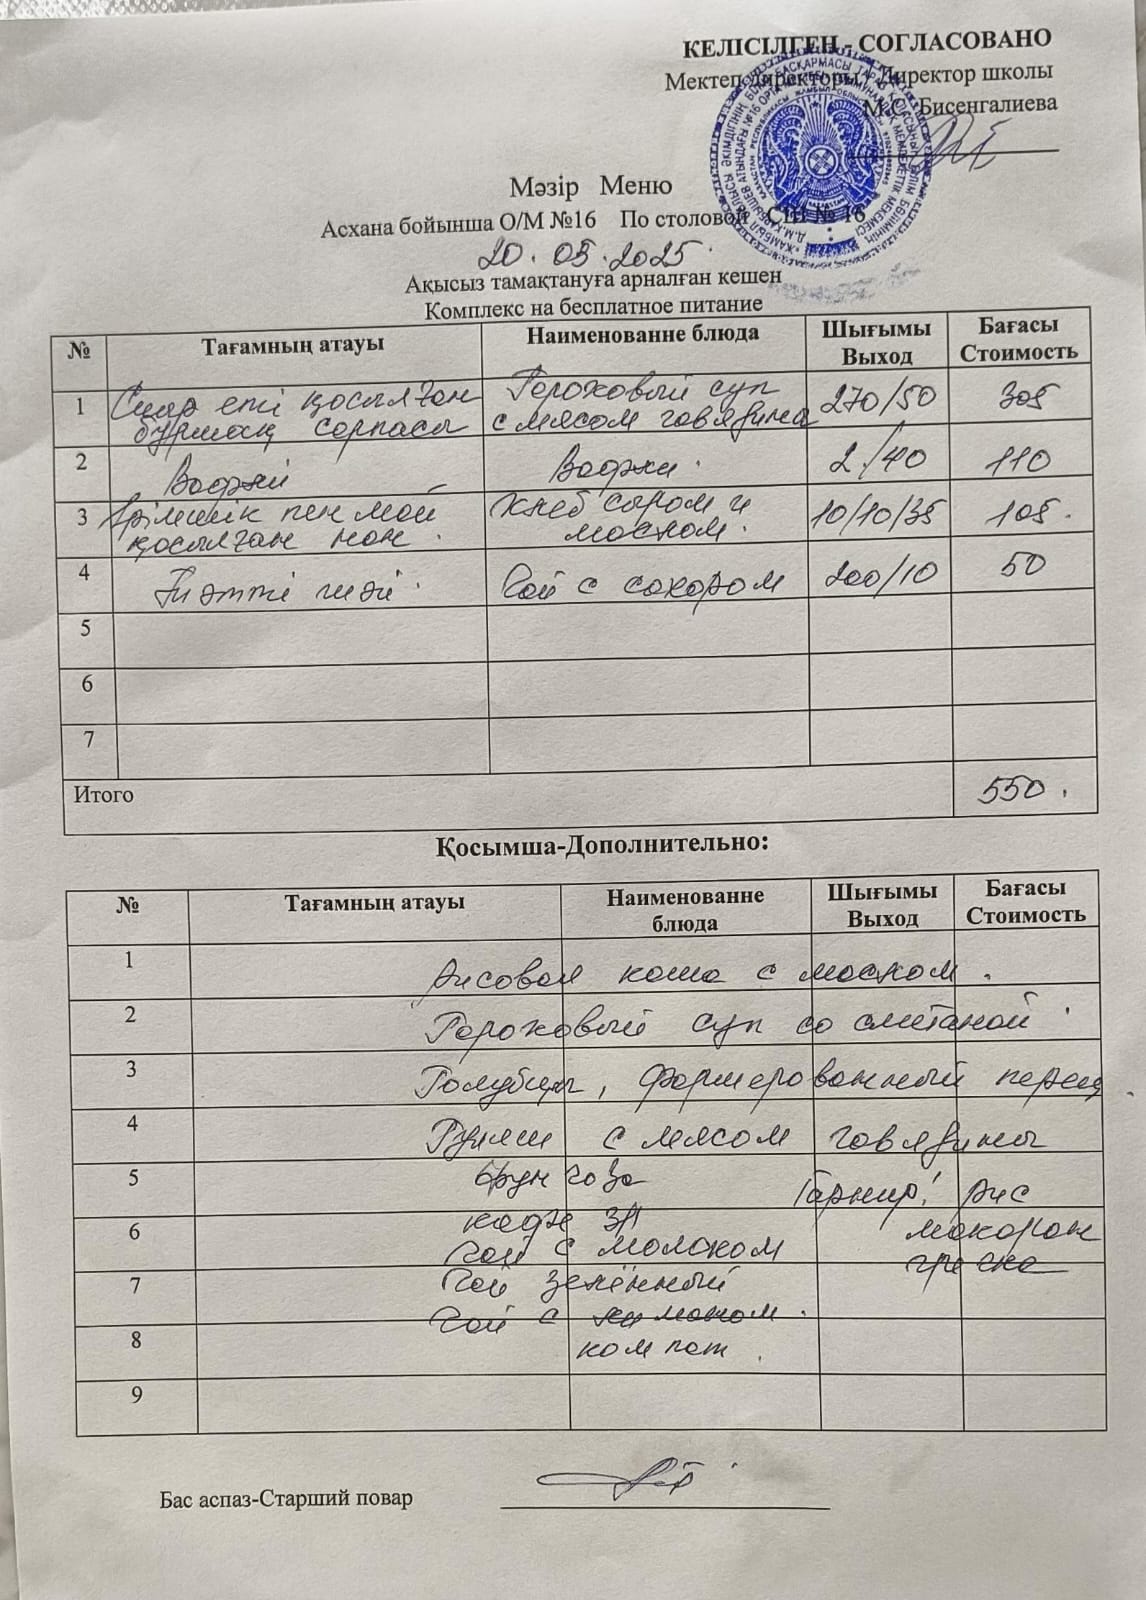 КЕЛІСІЛГЕН - СОГЛАСОВАНО
Мектеп директоры / Директор школы
М.С. Бисенгалиева
Мәзір Меню
Асхана бойынша О/М №16 По столовой СШ № 16
20.05.2025.
Ақысыз тамақтануға арналған кешен
Комплекс на бесплатное питание
№ Тағамның атауы Наименованне блюда Шығымы Выход Бағасы Стоимость
1 Сиыр еті қосылған бұршақ сорпасы Гороховый суп с мясом говядина 270/50 305
2 Вафли Вафли. 2/40 110
3 Ірімшік пен май қосылған нан. Хлеб сыром и маслом. 10/10/35 105.
4 Тәтті шәй. Чай с сахаром 200/10 50
5
6
7
Итого 550.
Қосымша-Дополнительно:
№ Тағамның атауы Наименованне блюда Шығымы Выход Бағасы Стоимость
1 Рисовая каша с маслом.
2 Гороховый суп со сметаной.
3 Голубцы, формерованный перец
4 Гуляш с мясом говядины
5 Гарнир! рис
6 кофе 3/1 макарон
чай с молоком гречка
7 Чай зелённый
чай с лимоном.
8 компот.
9
Бас аспаз-Старший повар